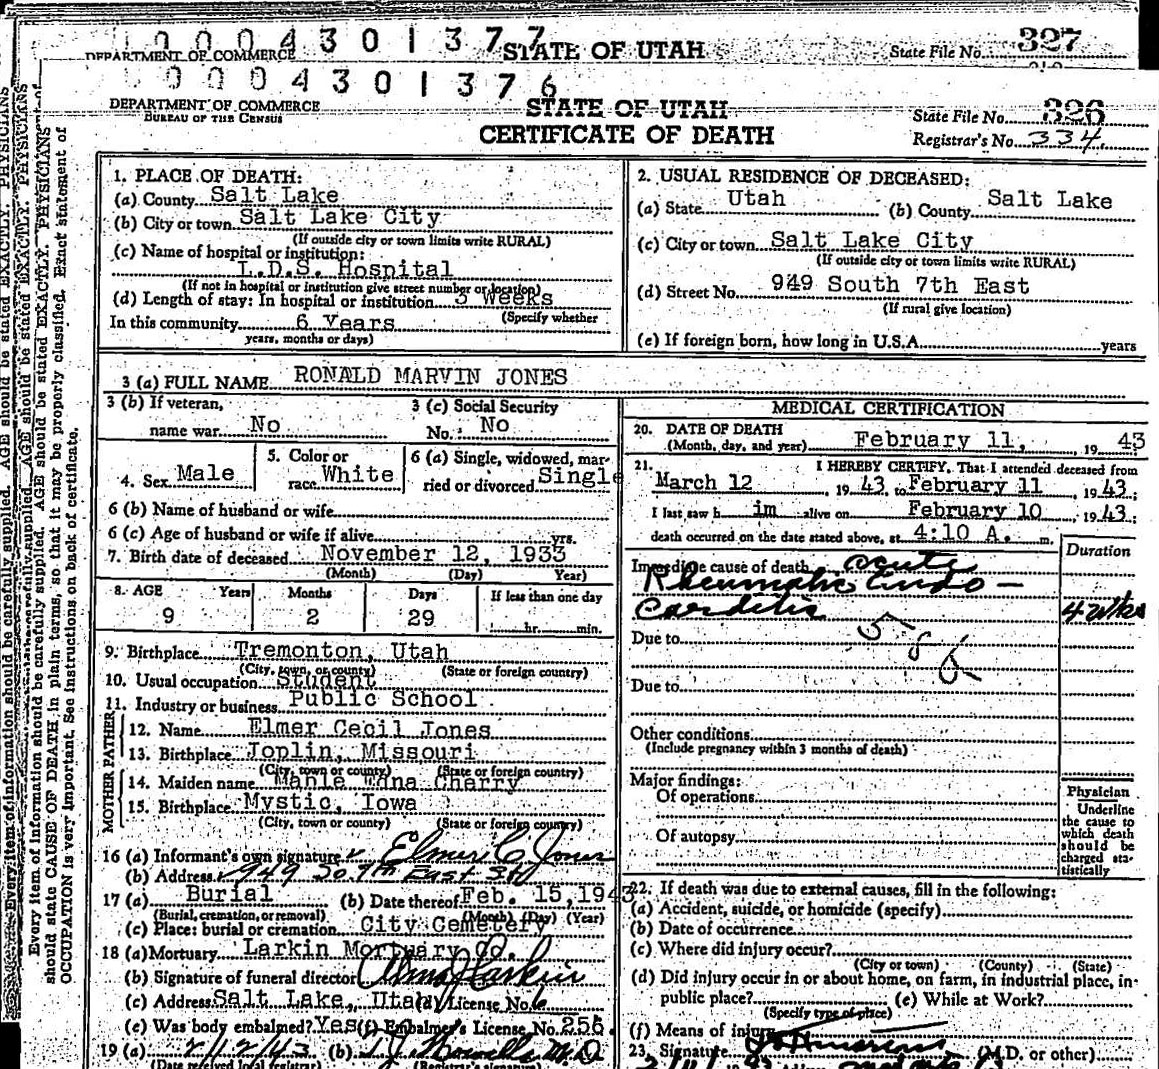 0004301377
DEPARTMENT OF COMMERCE STATE OF UTAH State File No. 327
0004301376
DEPARTMENT OF COMMERCE STATE OF UTAH State File No. 326
BUREAU OF THE CENSUS CERTIFICATE OF DEATH Registrar's No. 334.
Every item of information should be carefully supplied. AGE should be stated EXACTLY. PHYSICIANS
should state CAUSE OF DEATH in plain terms, so that it may be properly classified. Exact statement of
OCCUPATION is very important. See instructions on back of certificate.
1. PLACE OF DEATH:
(a) County Salt Lake
(b) City or town Salt Lake City
(If outside city or town limits write RURAL)
(c) Name of hospital or institution:
L.D.S. Hospital
(If not in hospital or institution give street number or location)
(d) Length of stay: In hospital or institution 3 Weeks
(Specify whether
In this community 6 Years
years, months or days)
2. USUAL RESIDENCE OF DECEASED:
(a) State Utah (b) County Salt Lake
(c) City or town Salt Lake City
(If outside city or town limits write RURAL)
(d) Street No. 949 South 7th East
(If rural give location)
(e) If foreign born, how long in U.S.A. years
3 (a) FULL NAME RONALD MARVIN JONES
3 (b) If veteran, 3 (c) Social Security
name war No No. No
4. Sex Male 5. Color or race White 6 (a) Single, widowed, married or divorced Single
6 (b) Name of husband or wife
6 (c) Age of husband or wife if alive yrs.
7. Birth date of deceased November 12, 1933
(Month) (Day) Year)
8. AGE Years Months Days If less than one day
9 2 29 hr. min.
9. Birthplace Tremonton, Utah
(City, town, or county) (State or foreign country)
10. Usual occupation Student
11. Industry or business Public School
FATHER
12. Name Elmer Cecil Jones
13. Birthplace Joplin, Missouri
(City, town or county) (State or foreign country)
MOTHER
14. Maiden name Mable Edna Cherry
15. Birthplace Mystic, Iowa
(City, town or county) (State or foreign country)
16 (a) Informant's own signature Elmer C Jones
(b) Address 949 So 7th East
17 (a) Burial (b) Date thereof Feb. 15, 1943
(Burial, cremation, or removal) (Month) (Day) (Year)
(c) Place: burial or cremation City Cemetery
18 (a) Mortuary Larkin Mortuary Co.
(b) Signature of funeral director Alma Larkin
(c) Address Salt Lake, Utah License No. 6
(e) Was body embalmed? Yes (f) Embalmer's License No. 256.
19 (a) 2/12/43 (b) M.D.
(Date received local registrar) (Registrar's signature)
MEDICAL CERTIFICATION
20. DATE OF DEATH
(Month, day, and year) February 11, 1943
21. I HEREBY CERTIFY, That I attended deceased from
March 12, 1943, to February 11, 1943;
I last saw him alive on February 10, 1943;
death occurred on the date stated above, at 4:10 A. m.
Duration
Immediate cause of death acute
Rheumatic Endo-
Carditis 4 wks
Due to
Due to
Other conditions
(Include pregnancy within 3 months of death)
Major findings:
Of operations
Of autopsy
Physician
Underline
the cause to
which death
should be
charged sta-
tistically
22. If death was due to external causes, fill in the following:
(a) Accident, suicide, or homicide (specify)
(b) Date of occurrence
(c) Where did injury occur?
(City or town) (County) (State)
(d) Did injury occur in or about home, on farm, in industrial place, in
public place? (e) While at Work?
(Specify type of place)
(f) Means of injury
23. Signature (M.D. or other)